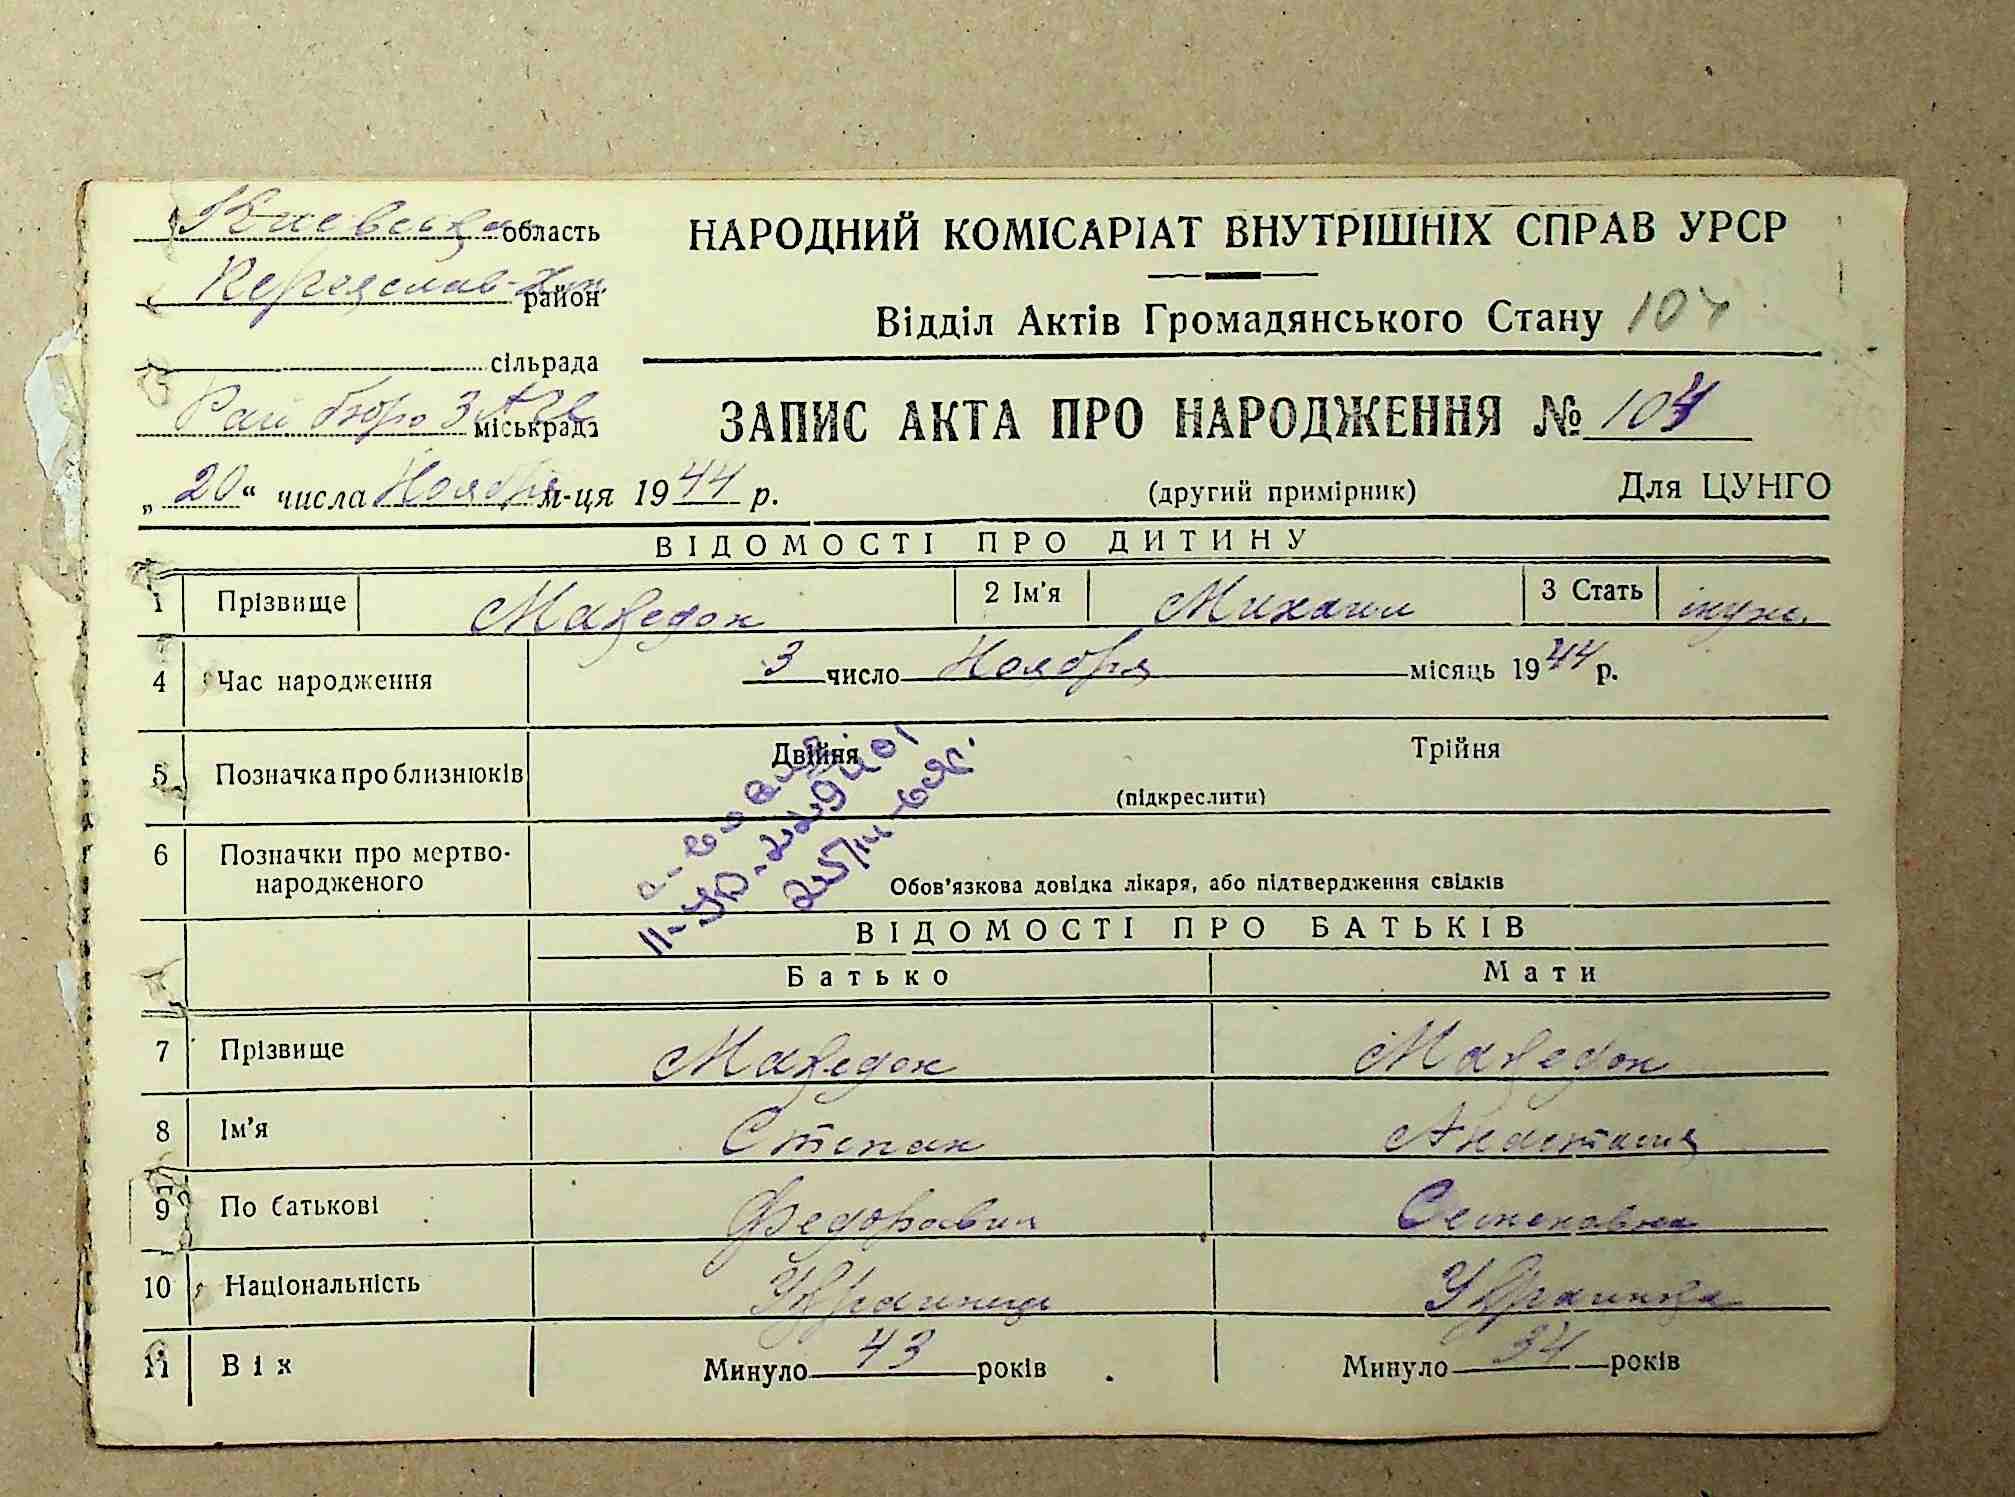 Киевская область
НАРОДНИЙ КОМІСАРІАТ ВНУТРІШНІХ СПРАВ УРСР
Переяслав-Хм. район
Відділ Актів Громадянського Стану 104
сільрада
Рай бюро ЗАГС міськрада
ЗАПИС АКТА ПРО НАРОДЖЕННЯ № 104
„20“ числа Ноября м-ця 1944 р.
(другий примірник) Для ЦУНГО
ВІДОМОСТІ ПРО ДИТИНУ
1 Прізвище Македон 2 Ім'я Михаил 3 Стать муж.
4 Час народження 3 число Ноября місяць 1944 р.
5 Позначка про близнюків Двійня Трійня
(підкреслити)
6 Позначки про мертво-
народженого Обов'язкова довідка лікаря, або підтвердження свідків
ВІДОМОСТІ ПРО БАТЬКІВ
Батько Мати
7 Прізвище Македон Македон
8 Ім'я Степан Анастасия
9 По батькові Федорович Семеновна
10 Національність Украинец Украинка
11 Вік Минуло 43 років Минуло 34 років